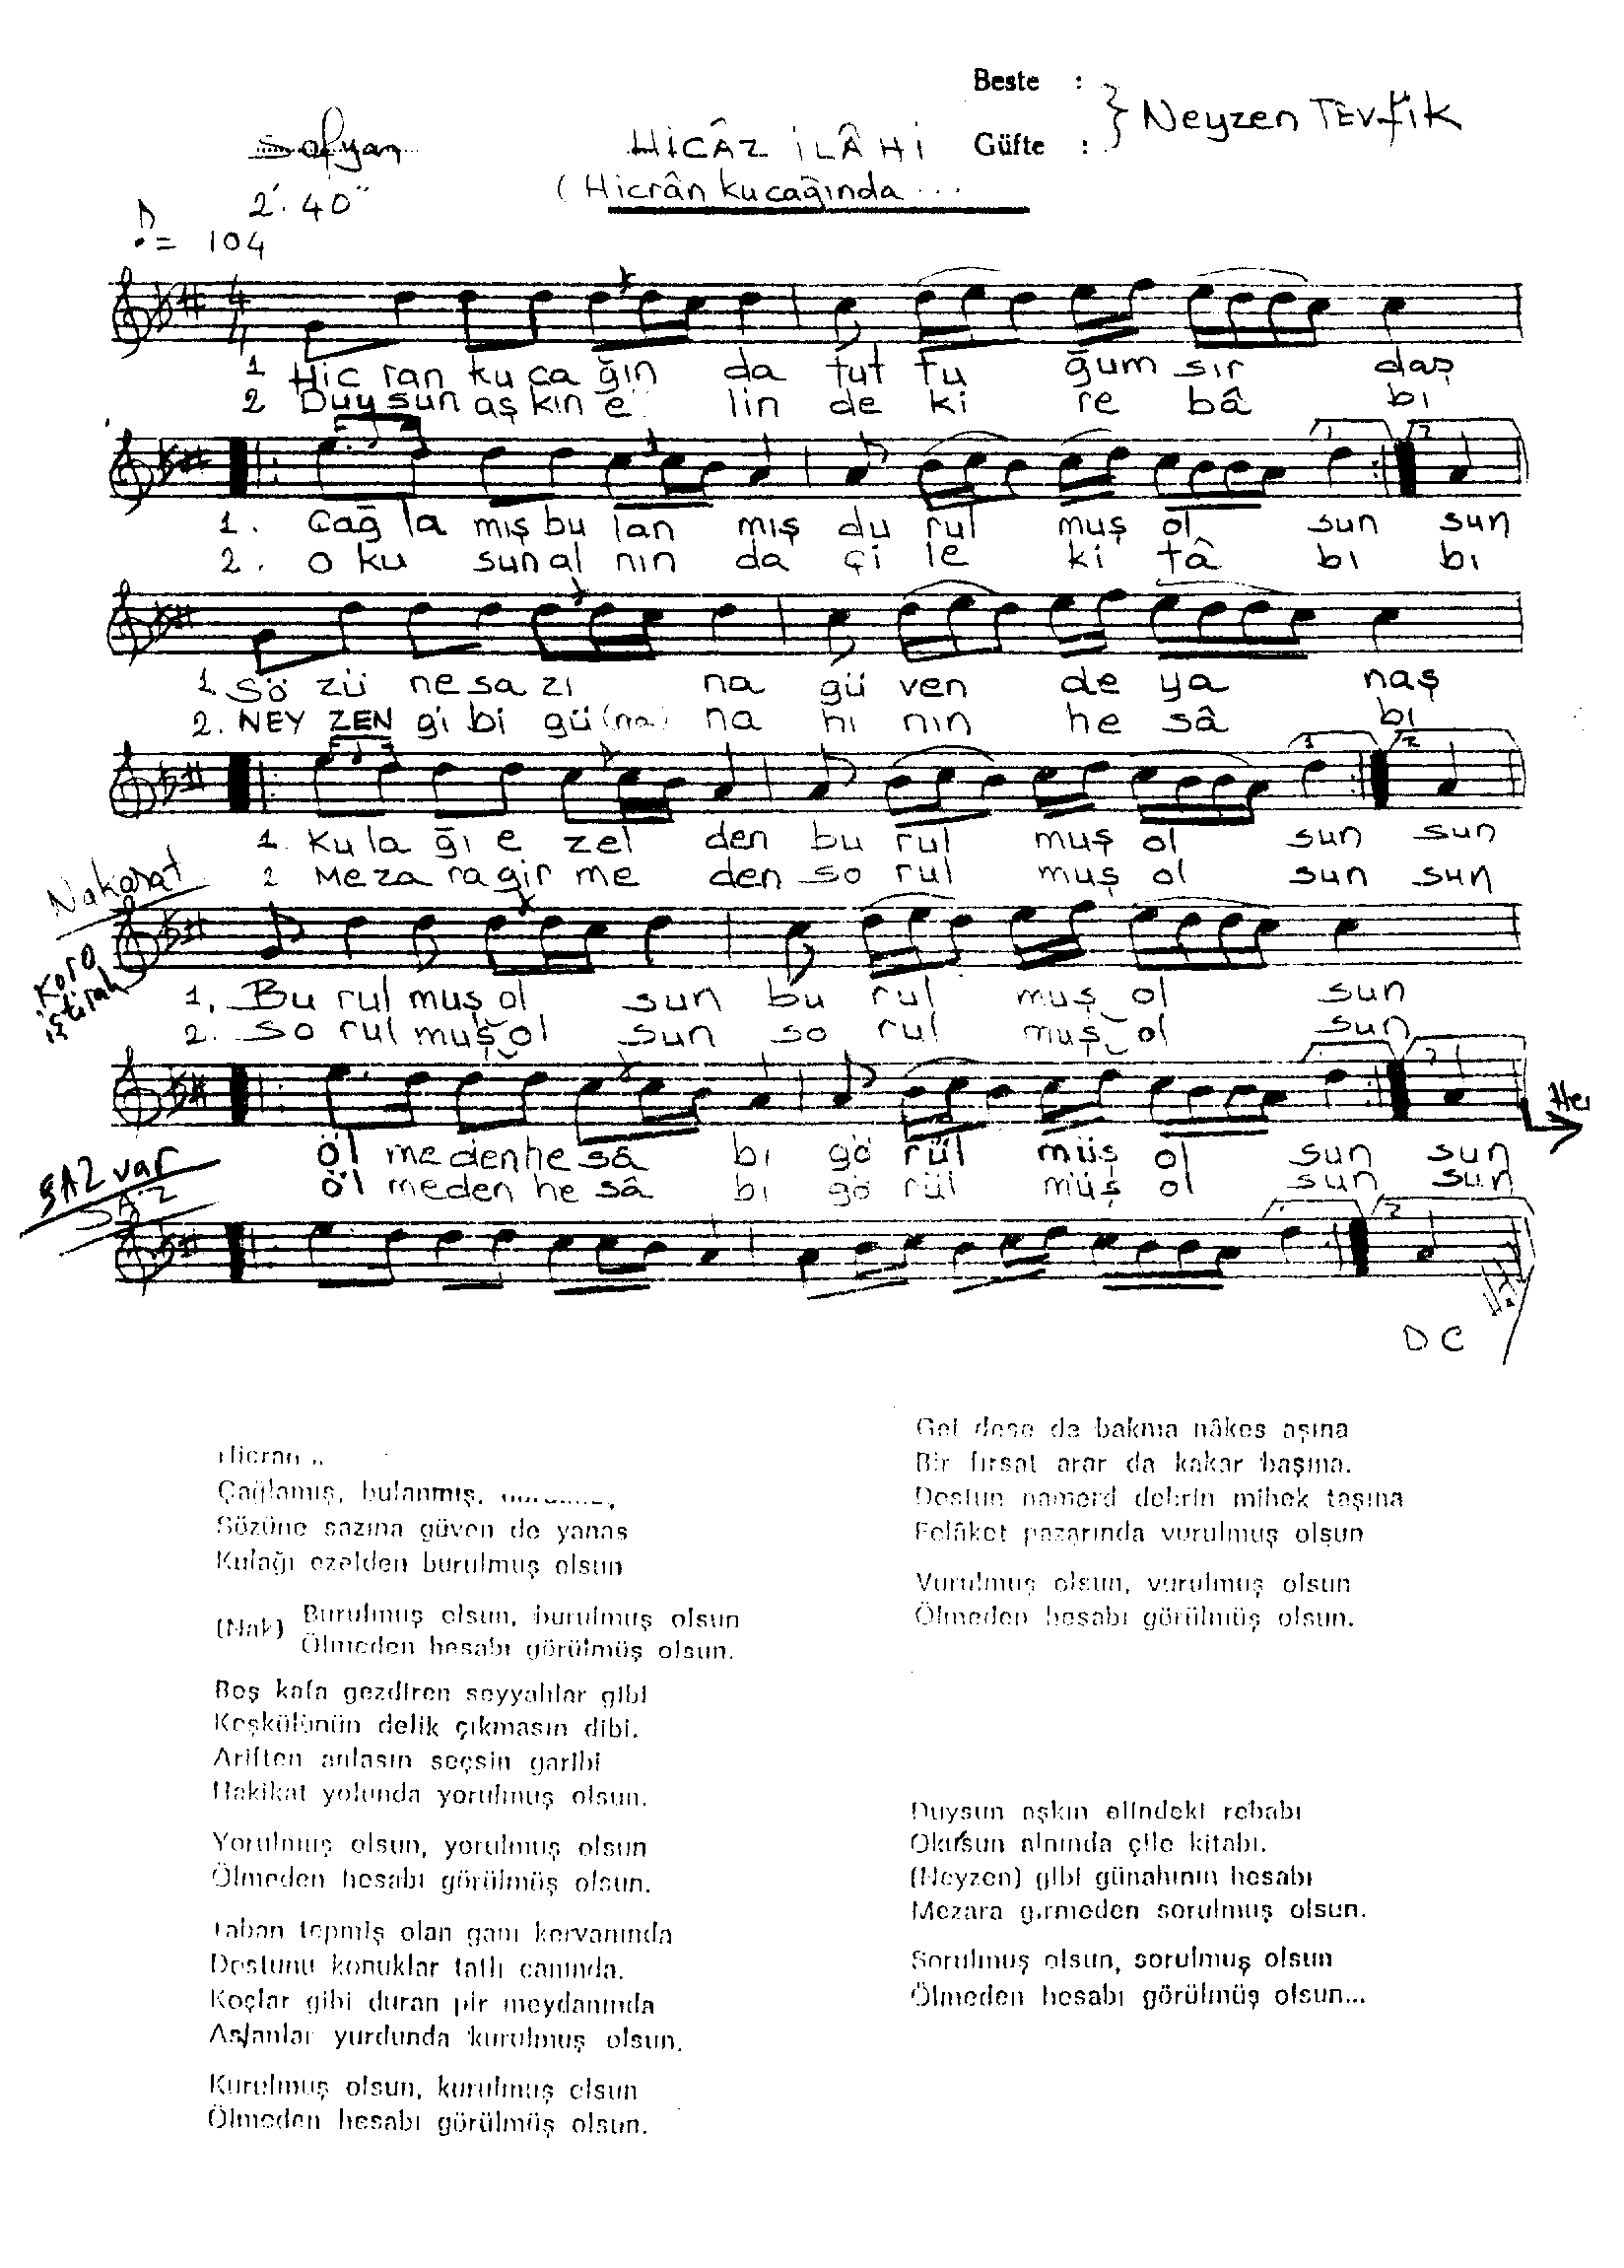 Beste :
Güfte :
} Neyzen TEVfik
Sofyan
HİCÂZ İLÂHİ
2'. 40''
(Hicrân kucağında ...
= 104
4
4
1 Hic ran ku ca ğın da tut tu ğum sır daş
2 Duy sun aş kın e lin de ki re bâ bı
1. Çağ la mış bu lan mış du rul muş ol sun sun
2. o ku sun al nın da çi le ki tâ bı bı
1. Sö zü ne sa zı na gü ven de ya naş
2. NEY ZEN gi bi gü (na) na hı nın he sâ bı
1. Ku la ğı e zel den bu rul muş ol sun sun
2 Me za ra gir me den so rul muş ol sun sun
Nakarat
Koro
iştirak
1. Bu rul muş ol sun bu rul muş ol sun
2. So rul muş ol sun so rul muş ol sun
öl me den he sâ bı gö rül müş ol sun sun
öl me den he sâ bı gö rül müş ol sun sun
SAZ var
SAZ
D C
Hicran ..
Çağlamış, bulanmış,
Sözüne sazına güven de yanaş
Kulağı ezelden burulmuş olsun
(Nak) Burulmuş olsun, burulmuş olsun
Ölmeden hesabı görülmüş olsun.
Boş kafa gezdiren seyyahlar gibi
Keşkülünün delik çıkmasın dibi.
Ariften anlasın seçsin garibi
Hakikat yolunda yorulmuş olsun.
Yorulmuş olsun, yorulmuş olsun
Ölmeden hesabı görülmüş olsun.
Taban tepmiş olan gam kervanında
Destunu konuklar tatlı canında.
Koçlar gibi duran pir meydanında
Aslanlar yurdunda kurulmuş olsun.
Kurulmuş olsun, kurulmuş olsun
Ölmeden hesabı görülmüş olsun.
Gel dese de bakma nâkes aşına
Bir fırsat arar da kakar başına.
Destun namerd dehrin mihek taşına
Felâket pazarında vurulmuş olsun
Vurulmuş olsun, vurulmuş olsun
Ölmeden hesabı görülmüş olsun.
Duysun aşkın elindeki rebabı
Okusun alnında çile kitabı.
(Neyzen) gibi günahının hesabı
Mezara girmeden sorulmuş olsun.
Sorulmuş olsun, sorulmuş olsun
Ölmeden hesabı görülmüş olsun...